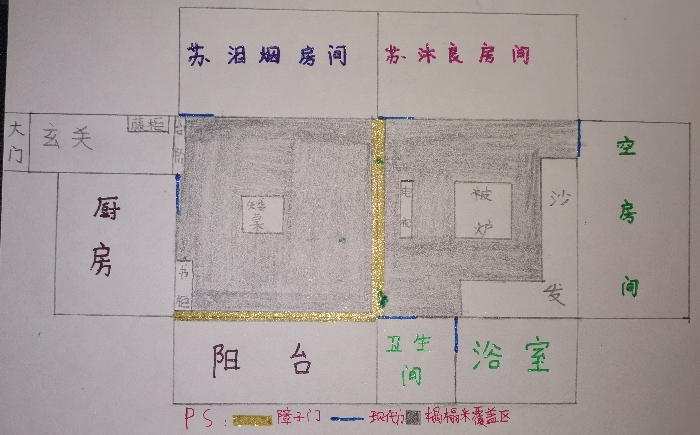 苏泪烟房间
苏沐良房间
大门
玄关
鞋柜
台阶
空房间
厨房
矮桌
电视
被炉
沙发
书柜
阳台
卫生间
浴室
PS: 障子门 现代门 榻榻米覆盖区